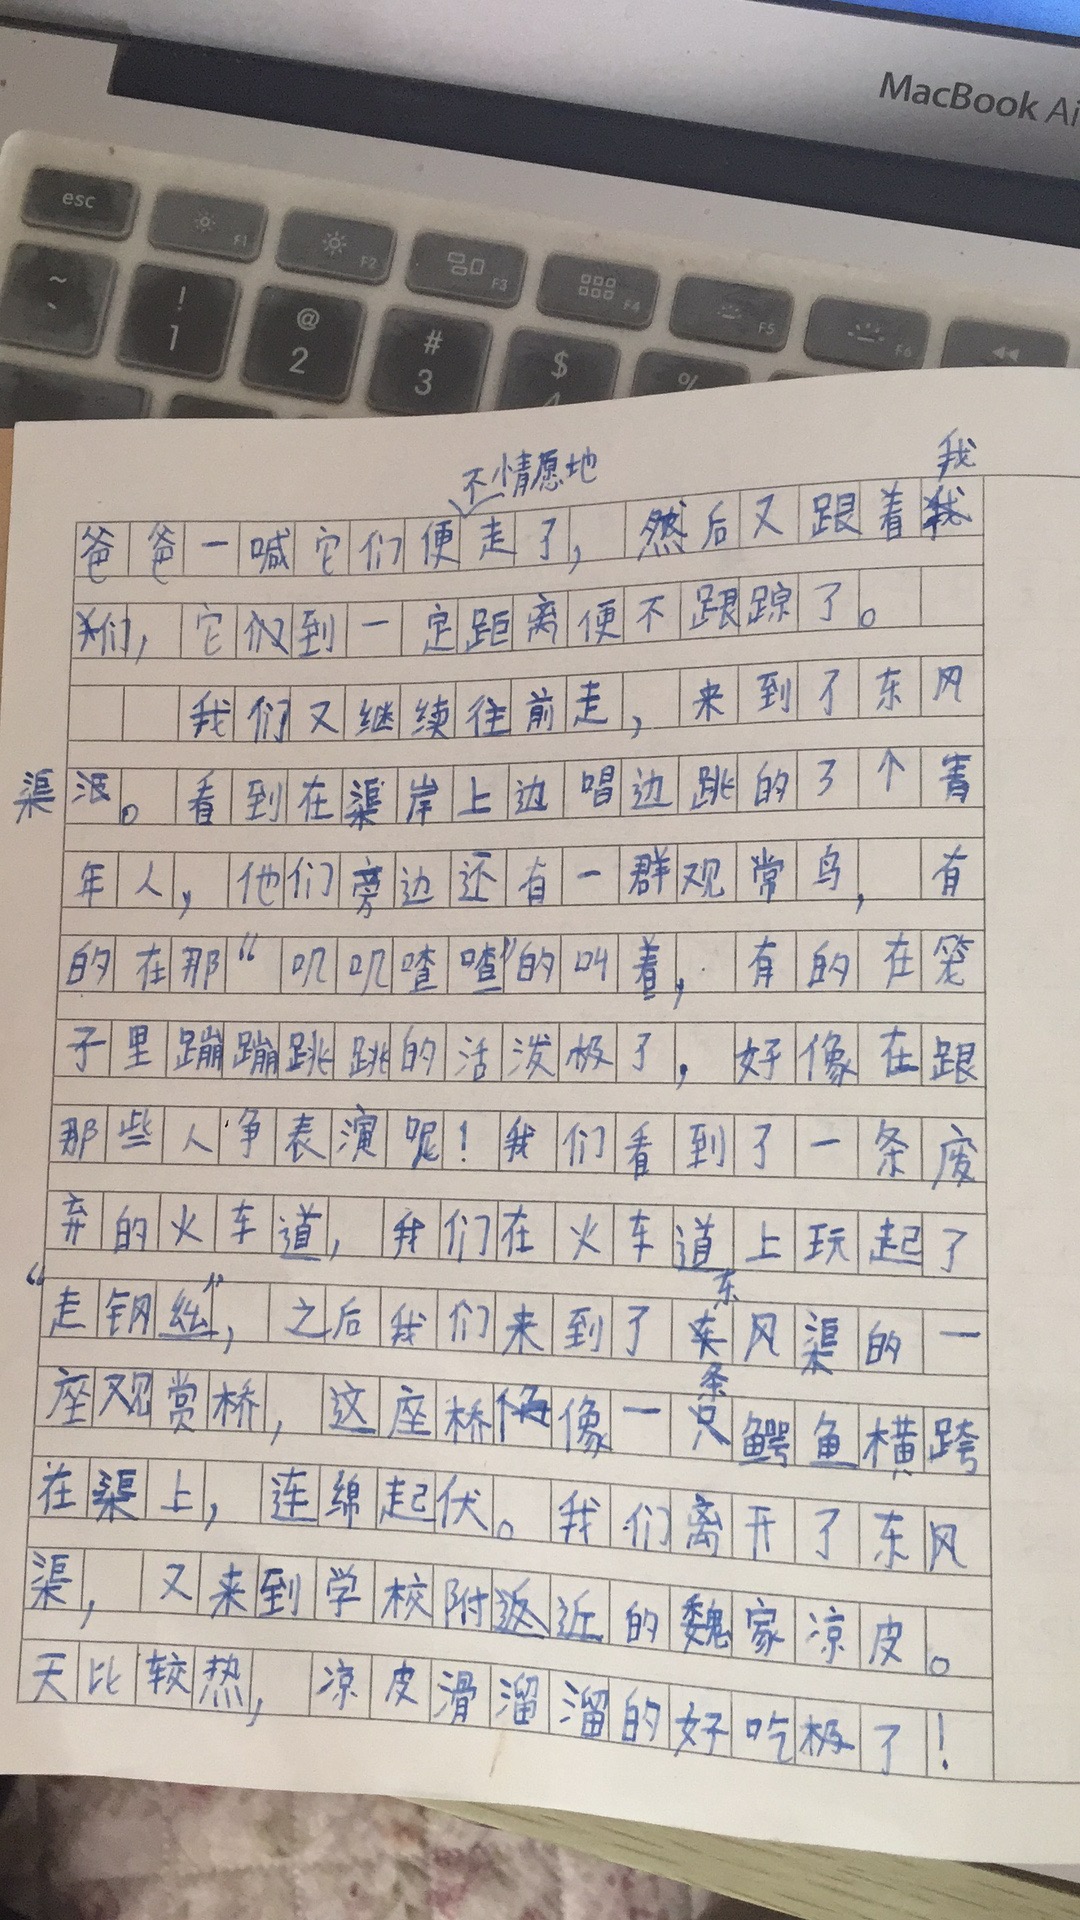 MacBook Ai
esc
F1
F2
F3
F4
F5
F6
~
`
!
1
@
2
#
3
$
4
%
不情愿地
我
爸爸一喊它们便走了，然后又跟着我
们，它仅到一定距离便不跟踪了。
我们又继续往前走，来到了东风
渠
。看到在渠岸上边唱边跳的了个青
年人，他们旁边还有一群观常鸟，有
的在那“叽叽喳喳”的叫着，有的在笼
子里蹦蹦跳跳的活泼极了，好像在跟
那些人争表演呢！我们看到了一条废
弃的火车道，我们在火车道上玩起了
“走钢丝”，之后我们来到了东风渠的一
东
座观赏桥，这座桥像一只鳄鱼横跨
条
在渠上，连绵起伏。我们离开了东风
渠，又来到学校附近的魏家凉皮。
天比较热，凉皮滑溜溜的好吃极了！